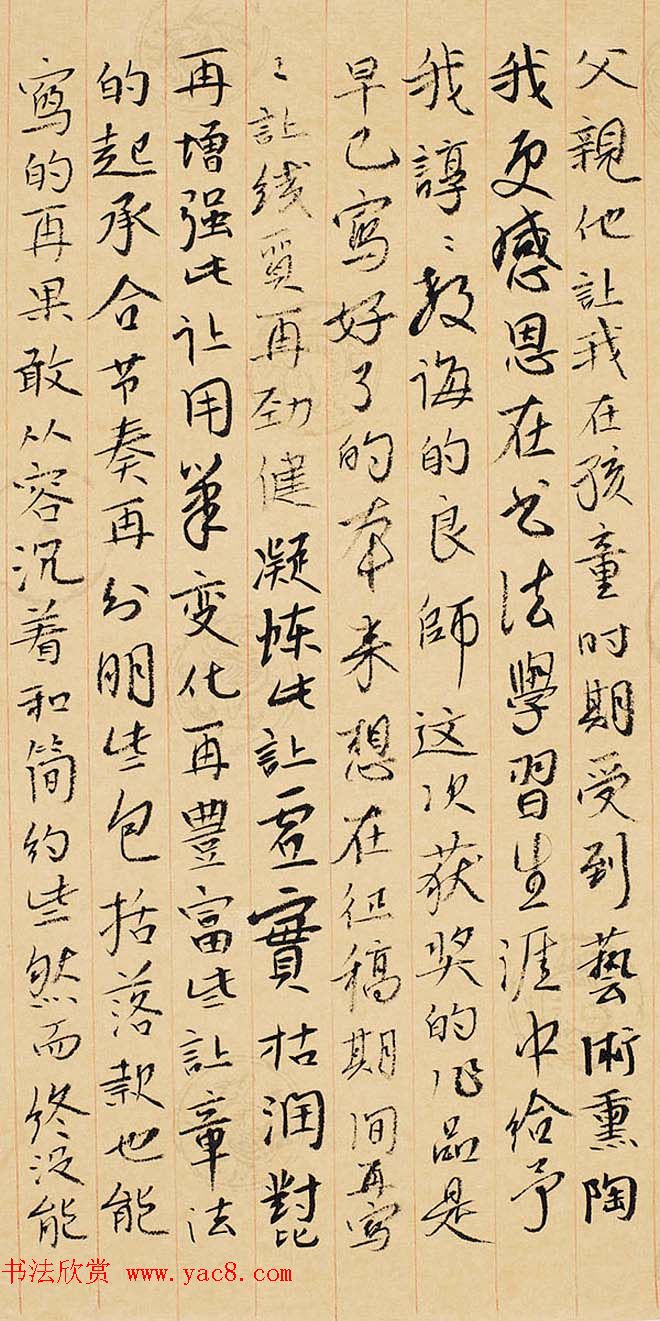 父親他让我在孩童时期受到藝術熏陶
我更感恩在书法學習生涯中给予
我諄〻教诲的良師这次获奖的作品是
早已寫好了的本来想在征稿期间再寫
〻让线质再劲健凝炼些让虚實枯润對比
再增强些让用笔变化再豐富些让章法
的起承合节奏再分明些包括落款也能
寫的再果敢从容沉着和简约些然而终没能
书法欣赏 www.yac8.com